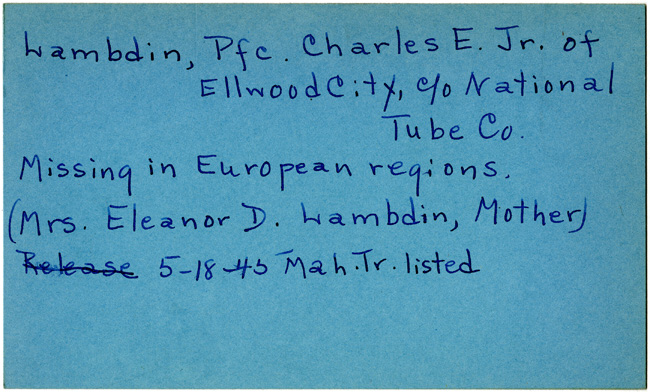 Lambdin, Pfc. Charles E. Jr. of
Ellwood City, c/o National
Tube Co.
Missing in European regions.
(Mrs. Eleanor D. Lambdin, Mother)
Release 5-18-45 Mah. Tr. listed